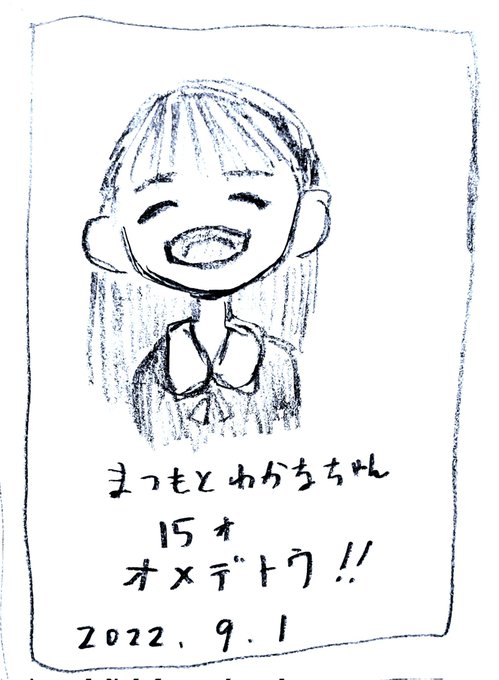 まつもとわかなちゃん
15才
オメデトウ!!
2022.9.1